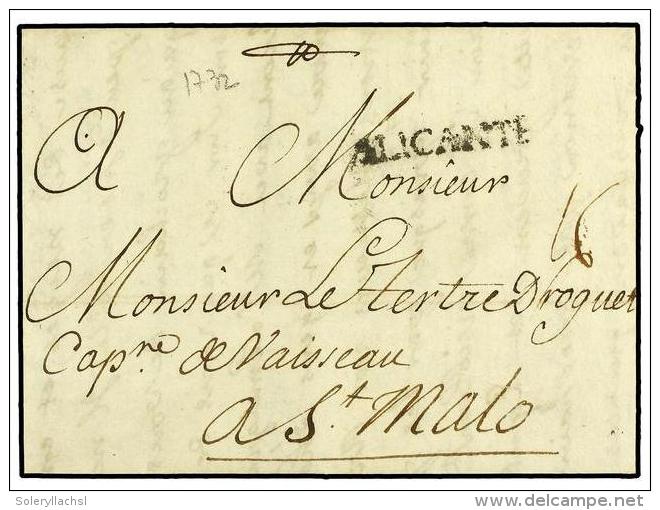 1732
ALICANTE
A Monsieur
Monsieur Le Tertre Droguet
Capne de Vaisseau
a St Malo
16
Soleryllachsl
delcampe.net